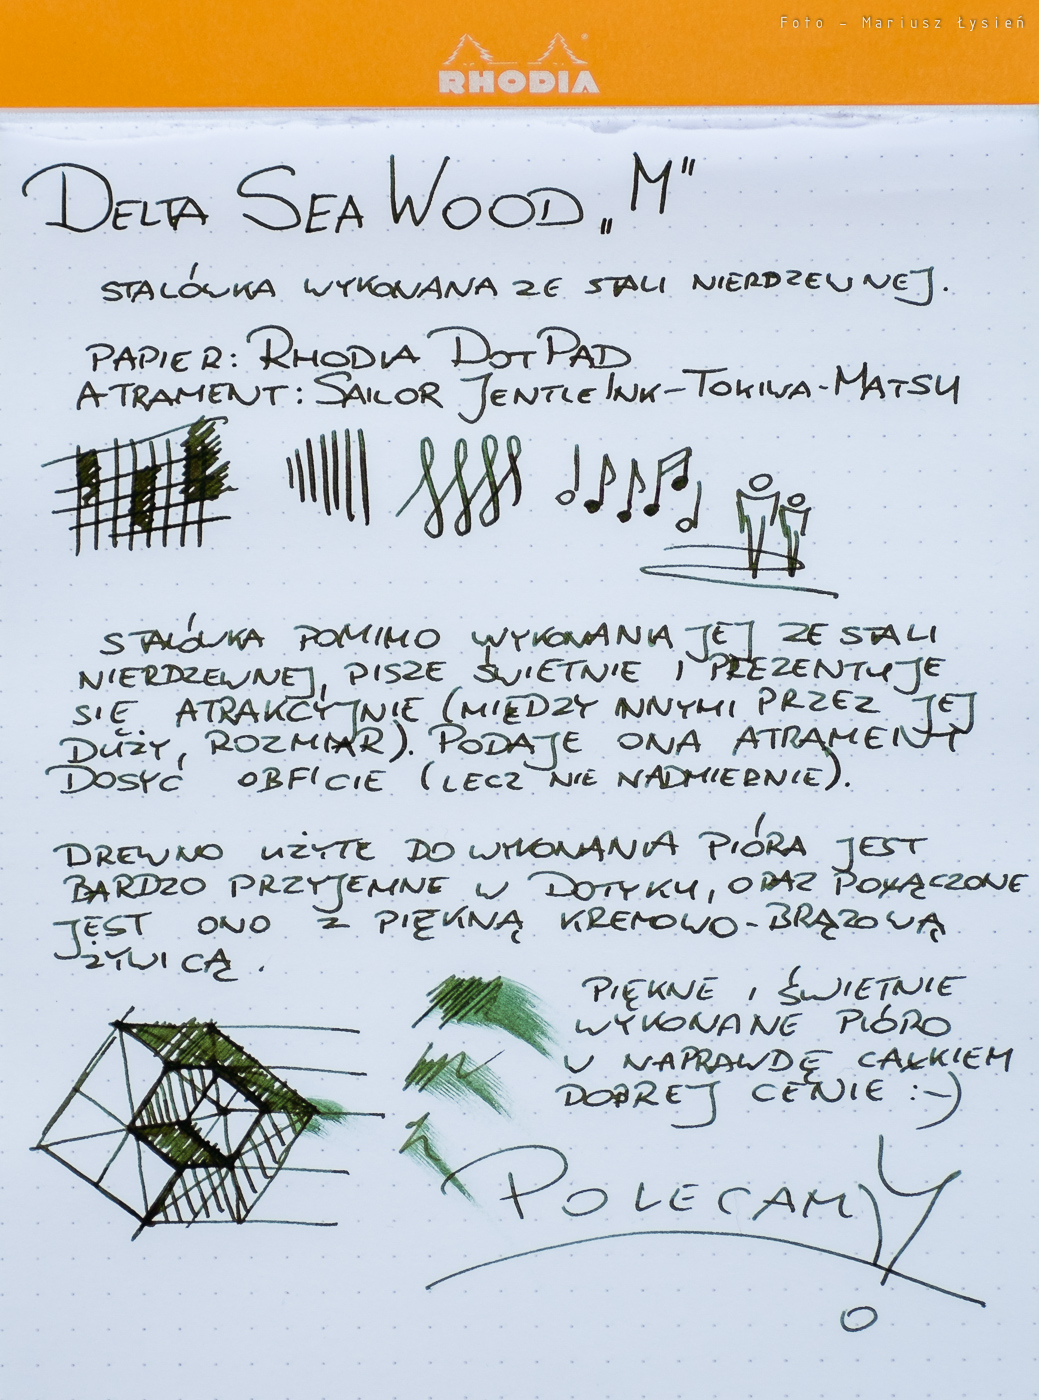 Foto – Mariusz Łysień
RHODIA
DELTA SEA WOOD „M"
STALÓWKA WYKONANA ZE STALI NIERDZEWNEJ.
PAPIER: RHODIA DOTPAD
ATRAMENT: SAILOR JENTLE INK-TOKIWA-MATSU
STALÓWKA POMIMO WYKONANIA JEJ ZE STALI
NIERDZEWNEJ, PISZE ŚWIETNIE I PREZENTUJE
SIĘ ATRAKCYJNIE (MIĘDZY INNYMI PRZEZ JEJ
DUŻY, ROZMIAR). PODAJE ONA ATRAMENT
DOSYĆ OBFICIE (LECZ NIE NADMIERNIE).
DREWNO UŻYTE DO WYKONANIA PIÓRA JEST
BARDZO PRZYJEMNE W DOTYKU, ORAZ POŁĄCZONE
JEST ONO Z PIĘKNĄ KREMOWO-BRĄZOWĄ
ŻYWICĄ.
PIĘKNE I ŚWIETNIE
WYKONANE PIÓRO
W NAPRAWDĘ CAŁKIEM
DOBREJ CENIE :-)
POLECAMY